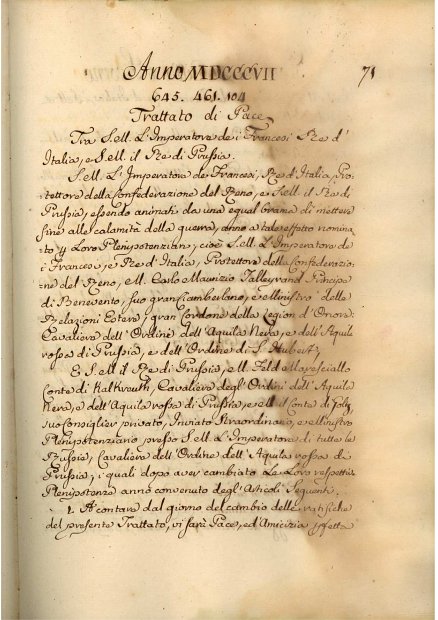 Anno MDCCCVII
71
645. 461. 104
Trattato di Pace
Tra S. M. L'Imperatore de i Francesi Re d'
Italia, e S. M. il Re di Prussia.
S. M. L'Imperatore de Francesi, Re d'Italia, Pro-
tettore della Confederazione del Reno, e S. M. il Re di
Prussia, essendo animati da una egual brama di mettere
fine alle calamità della guerra, anno a tale effetto nomina-
to p Loro Plenipotenziarj, cioè S. M. L'Imperatore de
i Francesi, e Re d'Italia, Protettore della Confederazio-
=ne del Reno, e M. Carlo Maurizio Talleyrand Principe
di Benevento, suo gran Ciamberlano, e Ministro delle
Relazioni Estere, gran Cordone della Legion d'Onore
Cavaliere dell'Ordine dell'Aquila Nera, e dell'Aquila
rossa di Prussia, e dell'Ordine di S. Hubert;
E S. M. il Re di Prussia, e M. Feld Maresciallo
Conte di Kalkreuth, Cavaliere degl'Ordini dell'Aquila
Nera, e dell'Aquila rossa di Prussia, e M. il Conte di
suo Consiglier privato, Inviato Straordinario, e Ministro
Plenipotenziario presso S. M. L'Imperatore di tutte le
Russie, Cavaliere dell'Ordine dell'Aquila rossa di
Prussia; i quali dopo aver cambiato Le Loro respettive
Plenipotenze anno convenuto degl'Articoli Seguenti.
1. A contare dal giorno del cambio delle ratifiche
del presente Trattato, vi sarà Pace, ed Amicizia pfetta